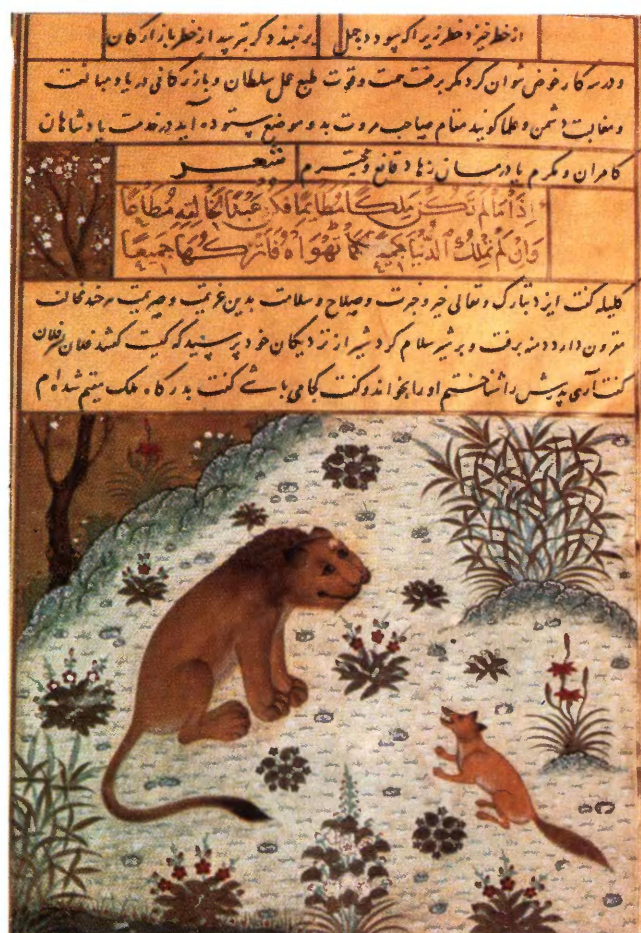 از خطر خیزد خطر زیرا که سود ده چهل بر نبندد گر بترسد از خطر بازارگان
و در سه کار خوض نتوان کرد مگر برفعت همت و قوت طبع عمل سلطان و بازرگانی دریا و مبالغت
و مغالبت دشمن و علما گویند مقام صاحب مروت بدو موضع ستوده آید در خدمت پادشاهان
کامران و مکرم یا در میان زهاد قانع و محترم شعر
إِذَا مَا لَمْ تَكُنْ مَلِكًا مُطَاعًا فَكُنْ عَبْدًا لِخَالِقِهِ مُطَاعًا
وَإِنْ لَمْ تَمْلِكِ الدُّنْيَا جَمِيعًا كَمَا تَهْوَاهُ فَاتْرُكْهَا جَمِيعًا
کلیله گفت ایزد تبارک و تعالی خیر و خیرت و صلاح و سلامت بدین عزیمت و هر چند مخالفت
مقرون داراد دمنه برفت و بر شیر سلام کرد شیر از نزدیکان خود پرسید که کیست گفتند فلان پسر فلان
گفت آری پدرش را شناختم او را بخواند و گفت کجا می باشی گفت بدرگاه ملک مقیم شده ام